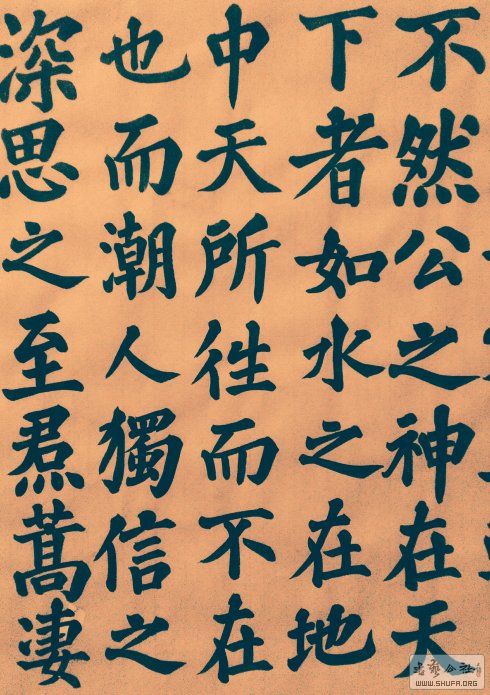 不然公之神在天
下者如水之在地
中天所徃而不在
也而潮人獨信之
深思之至焄蒿淒
書藝公社
WWW.SHUFA.ORG